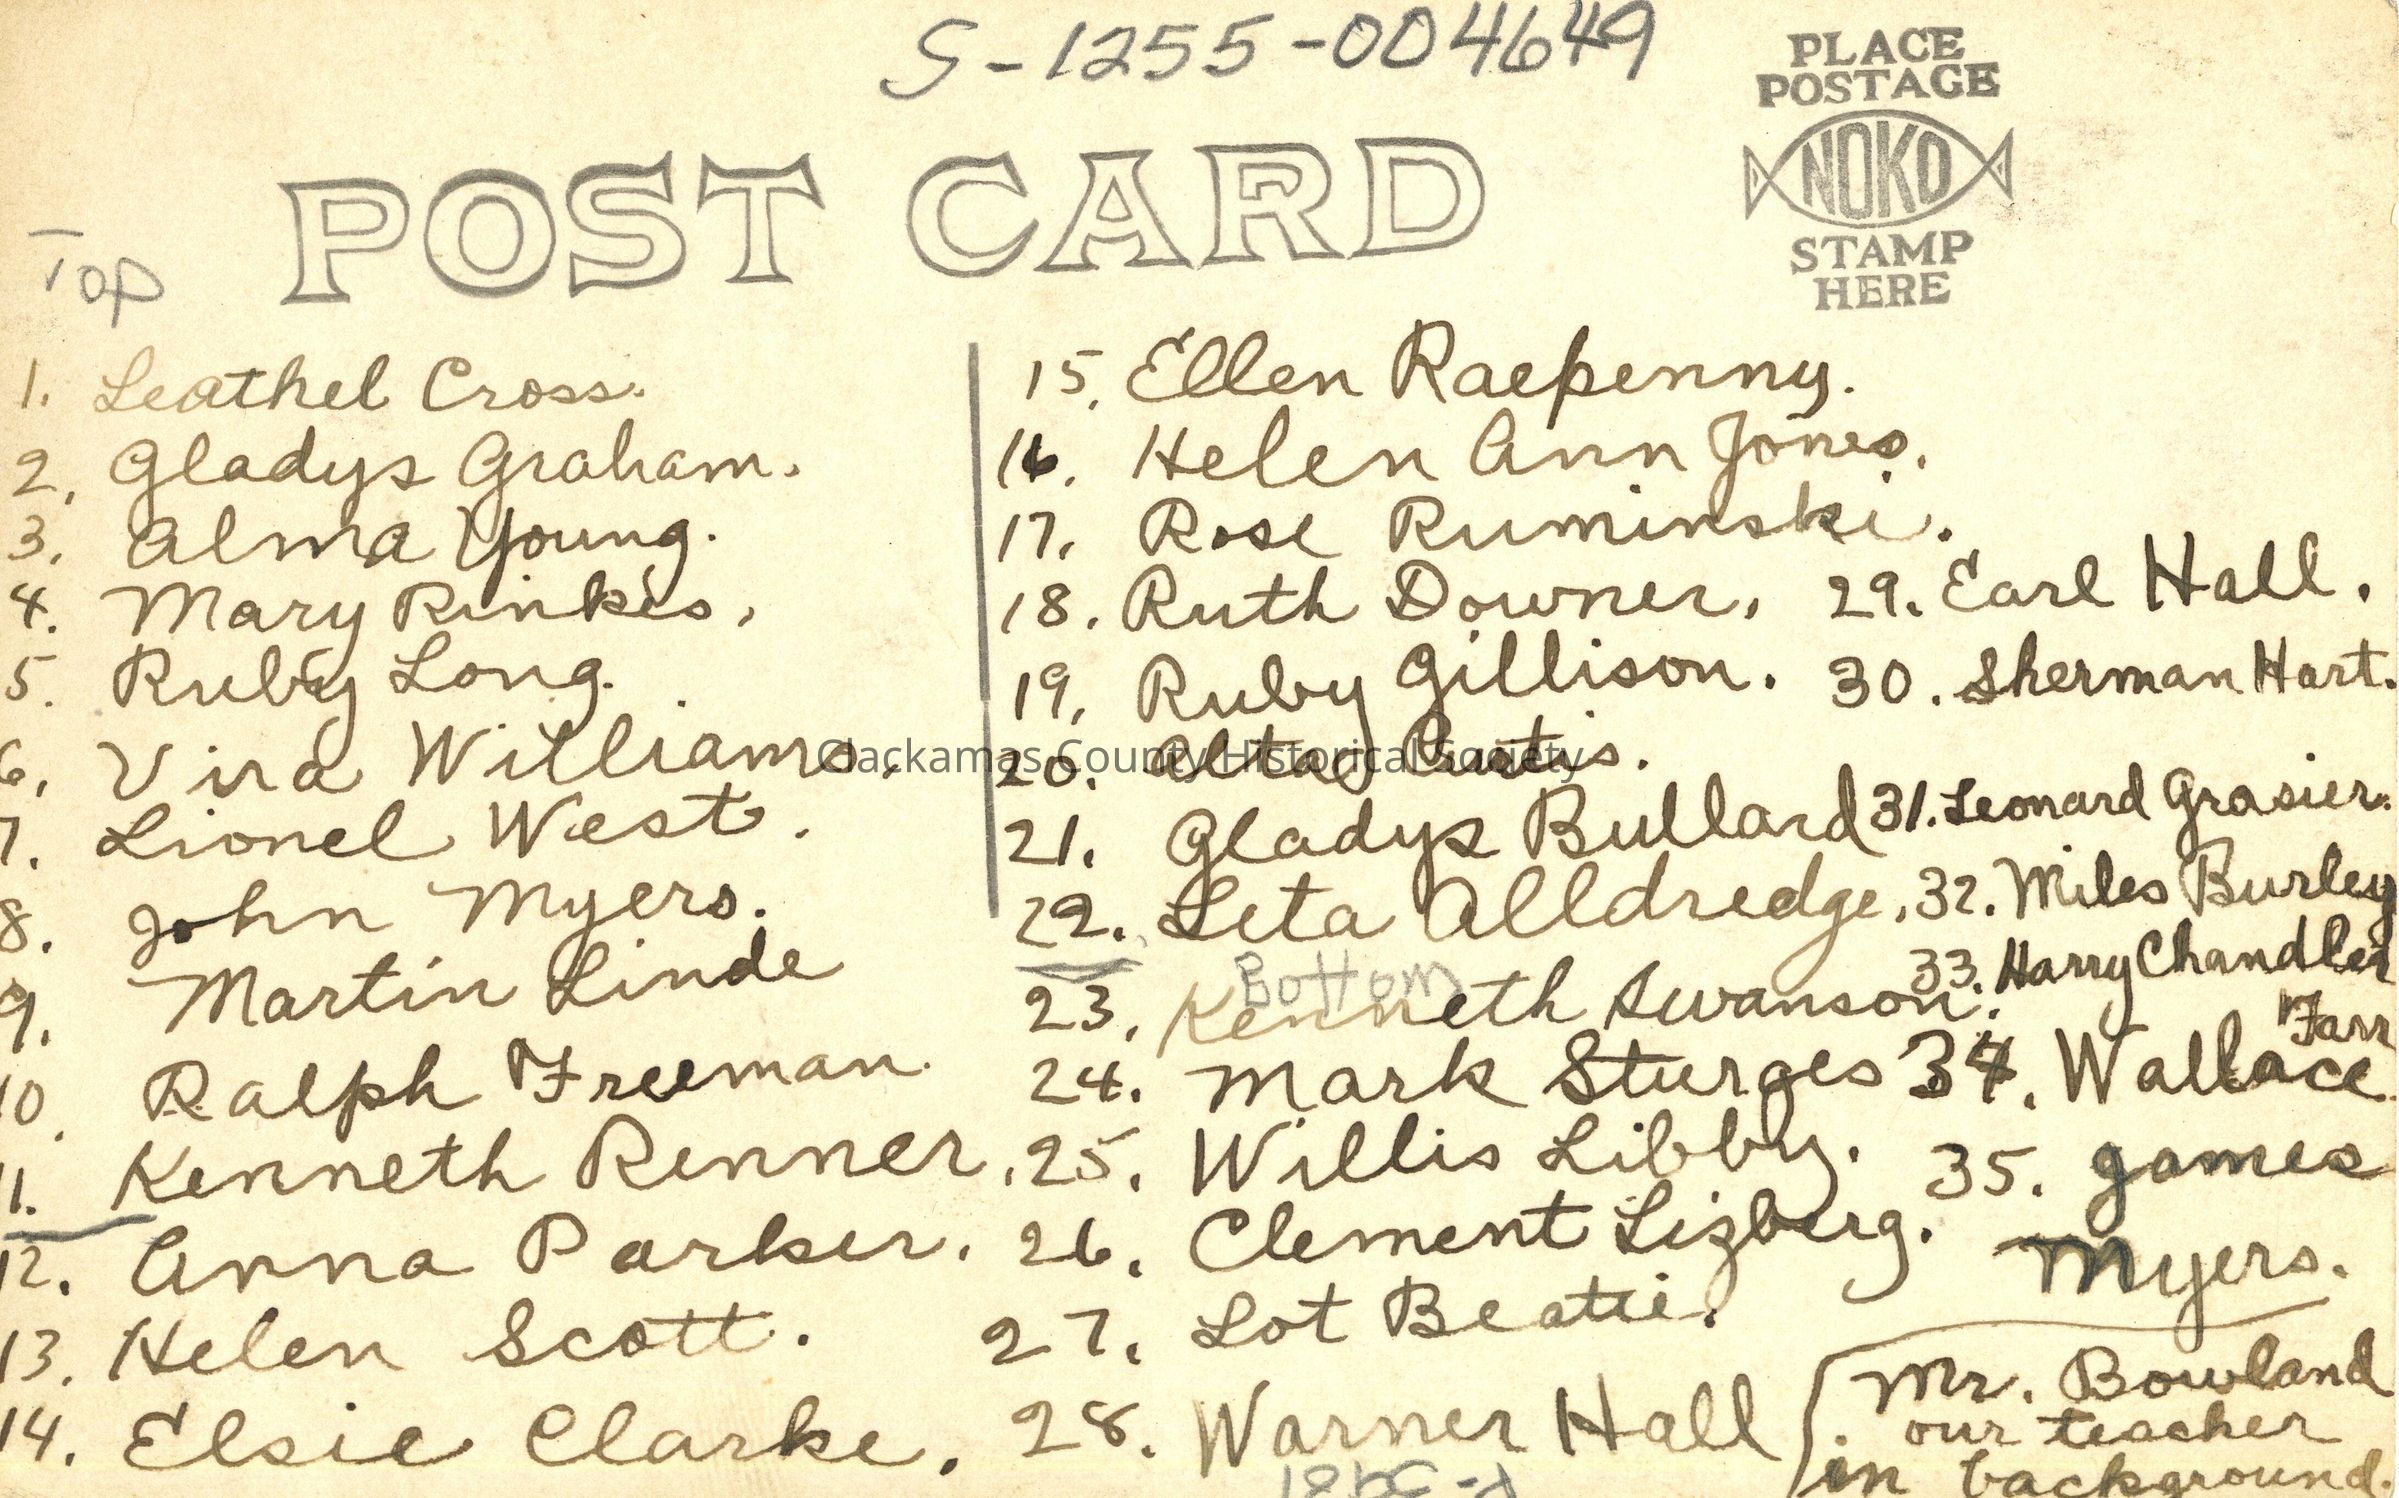 S-1255-004649
PLACE
POSTAGE
NOKO
STAMP
HERE
POST CARD
Top
1. Leathel Cross.
2. Gladys Graham.
3. Alma Young.
4. Mary Rinkis.
5. Ruby Long.
6. Vira Williams.
7. Lionel West.
8. John Myers.
9. Martin Linde
10. Ralph Freeman.
11. Kenneth Renner.
12. Anna Parker.
13. Helen Scott.
14. Elsie Clarke.
15. Ellen Raepenny.
16. Helen Ann Jones.
17. Rose Ruminski.
18. Ruth Downer.
19. Ruby Gillison.
20. Alta Curtis.
Clackamas County Historical Society
21. Gladys Bullard
22. Leta Alldredge.
Bottom
23. Kenneth Swanson.
24. Mark Sturges
25. Willis Libby.
26. Clement Lizberg.
27. Lot Beatie.
28. Warner Hall
29. Earl Hall.
30. Sherman Hart.
31. Leonard Grasier.
32. Miles Burley
33. Harry Chandler
Farr
34. Wallace
35. James
Myers.
Mr. Bowland
our teacher
in background.